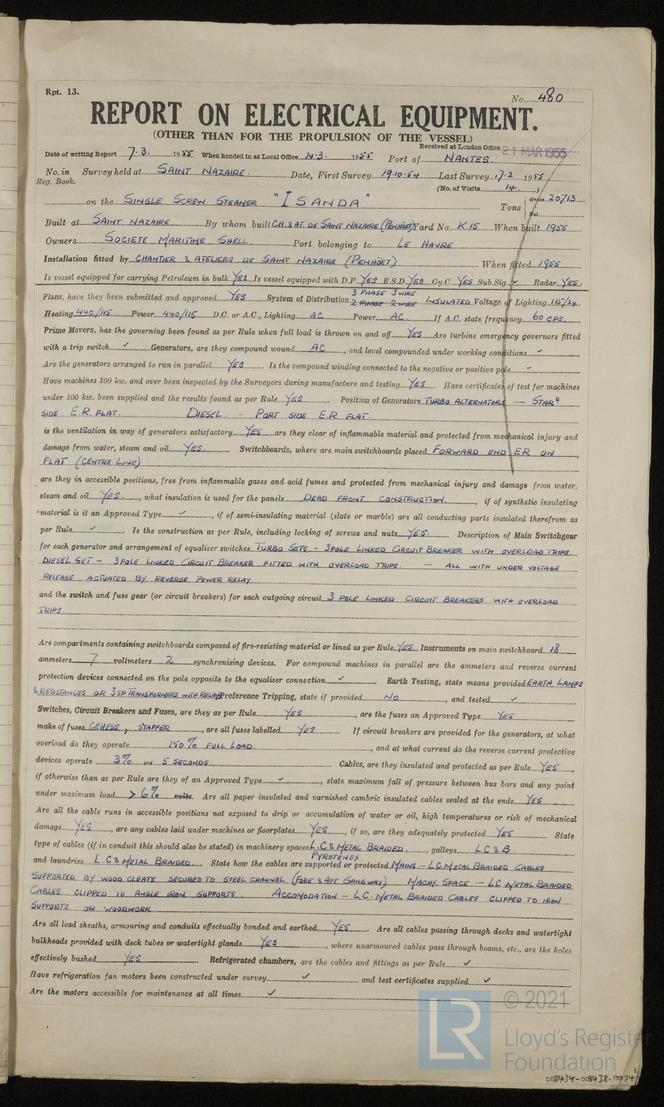 Rpt. 13.
No. 480
REPORT ON ELECTRICAL EQUIPMENT.
(OTHER THAN FOR THE PROPULSION OF THE VESSEL)
Received at London Office 21 MAR 1955
Date of writing Report 7.3. 1955 When handed in at Local Office 14.3. 1955 Port of NANTES.
No. in Reg. Book. Survey held at SAINT NAZAIRE. Date, First Survey 19.10.54 Last Survey 17.2 1955
(No. of Visits 14.)
on the SINGLE SCREW STEAMER "ISANDA" Tons Gross 20713
Net
Built at SAINT NAZAIRE By whom built CH. & AT. DE SAINT NAZAIRE (PENHÖET) Yard No. K.15 When built 1955
Owners SOCIETE MARITIME SHELL. Port belonging to LE HAVRE
Installation fitted by CHANTIER & ATELIERS DE SAINT NAZAIRE (PENHÖET) When fitted 1955
Is vessel equipped for carrying Petroleum in bulk YES Is vessel equipped with D.F. YES E.S.D. YES Gy.C. YES Sub.Sig. ✓ Radar YES.
Plans, have they been submitted and approved YES System of Distribution 3 PHASE 3 WIRE 2 PHASE 2 WIRE INSULATED Voltage of Lighting 115/24
Heating 440/115 Power 440/115 D.C. or A.C., Lighting AC Power AC If A.C. state frequency 60 CPS.
Prime Movers, has the governing been found as per Rule when full load is thrown on and off YES Are turbine emergency governors fitted
with a trip switch ✓ Generators, are they compound wound AC, and level compounded under working conditions ✓
Are the generators arranged to run in parallel YES Is the compound winding connected to the negative or positive pole ✓
Have machines 100 kw. and over been inspected by the Surveyors during manufacture and testing YES Have certificates of test for machines
under 100 kw. been supplied and the results found as per Rule YES Position of Generators TURBO ALTERNATORS – STARD
SIDE E.R. FLAT. DIESEL. – PORT SIDE E.R FLAT.
is the ventilation in way of generators satisfactory YES are they clear of inflammable material and protected from mechanical injury and
damage from water, steam and oil YES. Switchboards, where are main switchboards placed FORWARD END ER ON
FLAT (CENTRE LINE)
are they in accessible positions, free from inflammable gases and acid fumes and protected from mechanical injury and damage from water,
steam and oil YES, what insulation is used for the panels DEAD FRONT CONSTRUCTION, if of synthetic insulating
material is it an Approved Type ✓, if of semi-insulating material (slate or marble) are all conducting parts insulated therefrom as
per Rule ✓ Is the construction as per Rule, including locking of screws and nuts YES Description of Main Switchgear
for each generator and arrangement of equaliser switches TURBO SETS - 3 POLE LINKED CIRCUIT BREAKER WITH OVERLOAD TRIPS
DIESEL SET – 3 POLE LINKED CIRCUIT BREAKER FITTED WITH OVERLOAD TRIPS – ALL WITH UNDER VOLTAGE
RELEASE ACTUATED BY REVERSE POWER RELAY
and the switch and fuse gear (or circuit breakers) for each outgoing circuit 3 POLE LINKED CIRCUIT BREAKERS WITH OVERLOAD
TRIPS
Are compartments containing switchboards composed of fire-resisting material or lined as per Rule YES Instruments on main switchboard 18
ammeters 7 voltmeters 2 synchronising devices. For compound machines in parallel are the ammeters and reverse current
protection devices connected on the pole opposite to the equaliser connection ✓ Earth Testing, state means provided EARTH LAMPS
& RESISTANCES OR 3 SP TRANSFORMERS WITH RELAYS Preference Tripping, state if provided NO, and tested ✓
Switches, Circuit Breakers and Fuses, are they as per Rule YES, are the fuses an Approved Type YES
make of fuses GEHESS, STAPPER, are all fuses labelled YES If circuit breakers are provided for the generators, at what
overload do they operate 150% FULL LOAD., and at what current do the reverse current protective
devices operate 3% IN 5 SECONDS. Cables, are they insulated and protected as per Rule YES,
if otherwise than as per Rule are they of an Approved Type ✓, state maximum fall of pressure between bus bars and any point
under maximum load > 6% volts. Are all paper insulated and varnished cambric insulated cables sealed at the ends YES
Are all the cable runs in accessible positions not exposed to drip or accumulation of water or oil, high temperatures or risk of mechanical
damage YES, are any cables laid under machines or floorplates YES, if so, are they adequately protected YES State
type of cables (if in conduit this should also be stated) in machinery spaces L.C & METAL BRAIDED PYROTENEX, galleys LC & B
and laundries L.C & METAL BRAIDED. State how the cables are supported or protected MAINS – LC. METAL BRAIDED CABLES
SUPPORTED BY WOOD CLEATS SECURED TO STEEL CHANNEL (FORE & AFT GANGWAY) MACHY. SPACE – LC METAL BRAIDED
CABLES CLIPPED TO ANGLE IRON SUPPORTS. ACCOMODATION – LC. METAL BRAIDED CABLES CLIPPED TO IRON
SUPPORTS OR WOODWORK
Are all lead sheaths, armouring and conduits effectually bonded and earthed YES. Are all cables passing through decks and watertight
bulkheads provided with deck tubes or watertight glands YES, where unarmoured cables pass through beams, etc., are the holes
effectively bushed YES Refrigerated chambers, are the cables and fittings as per Rule ✓
Have refrigeration fan motors been constructed under survey ✓ and test certificates supplied ✓
Are the motors accessible for maintenance at all times ✓
© 2021
LR
Lloyd's Register
Foundation
008434-008438-0034